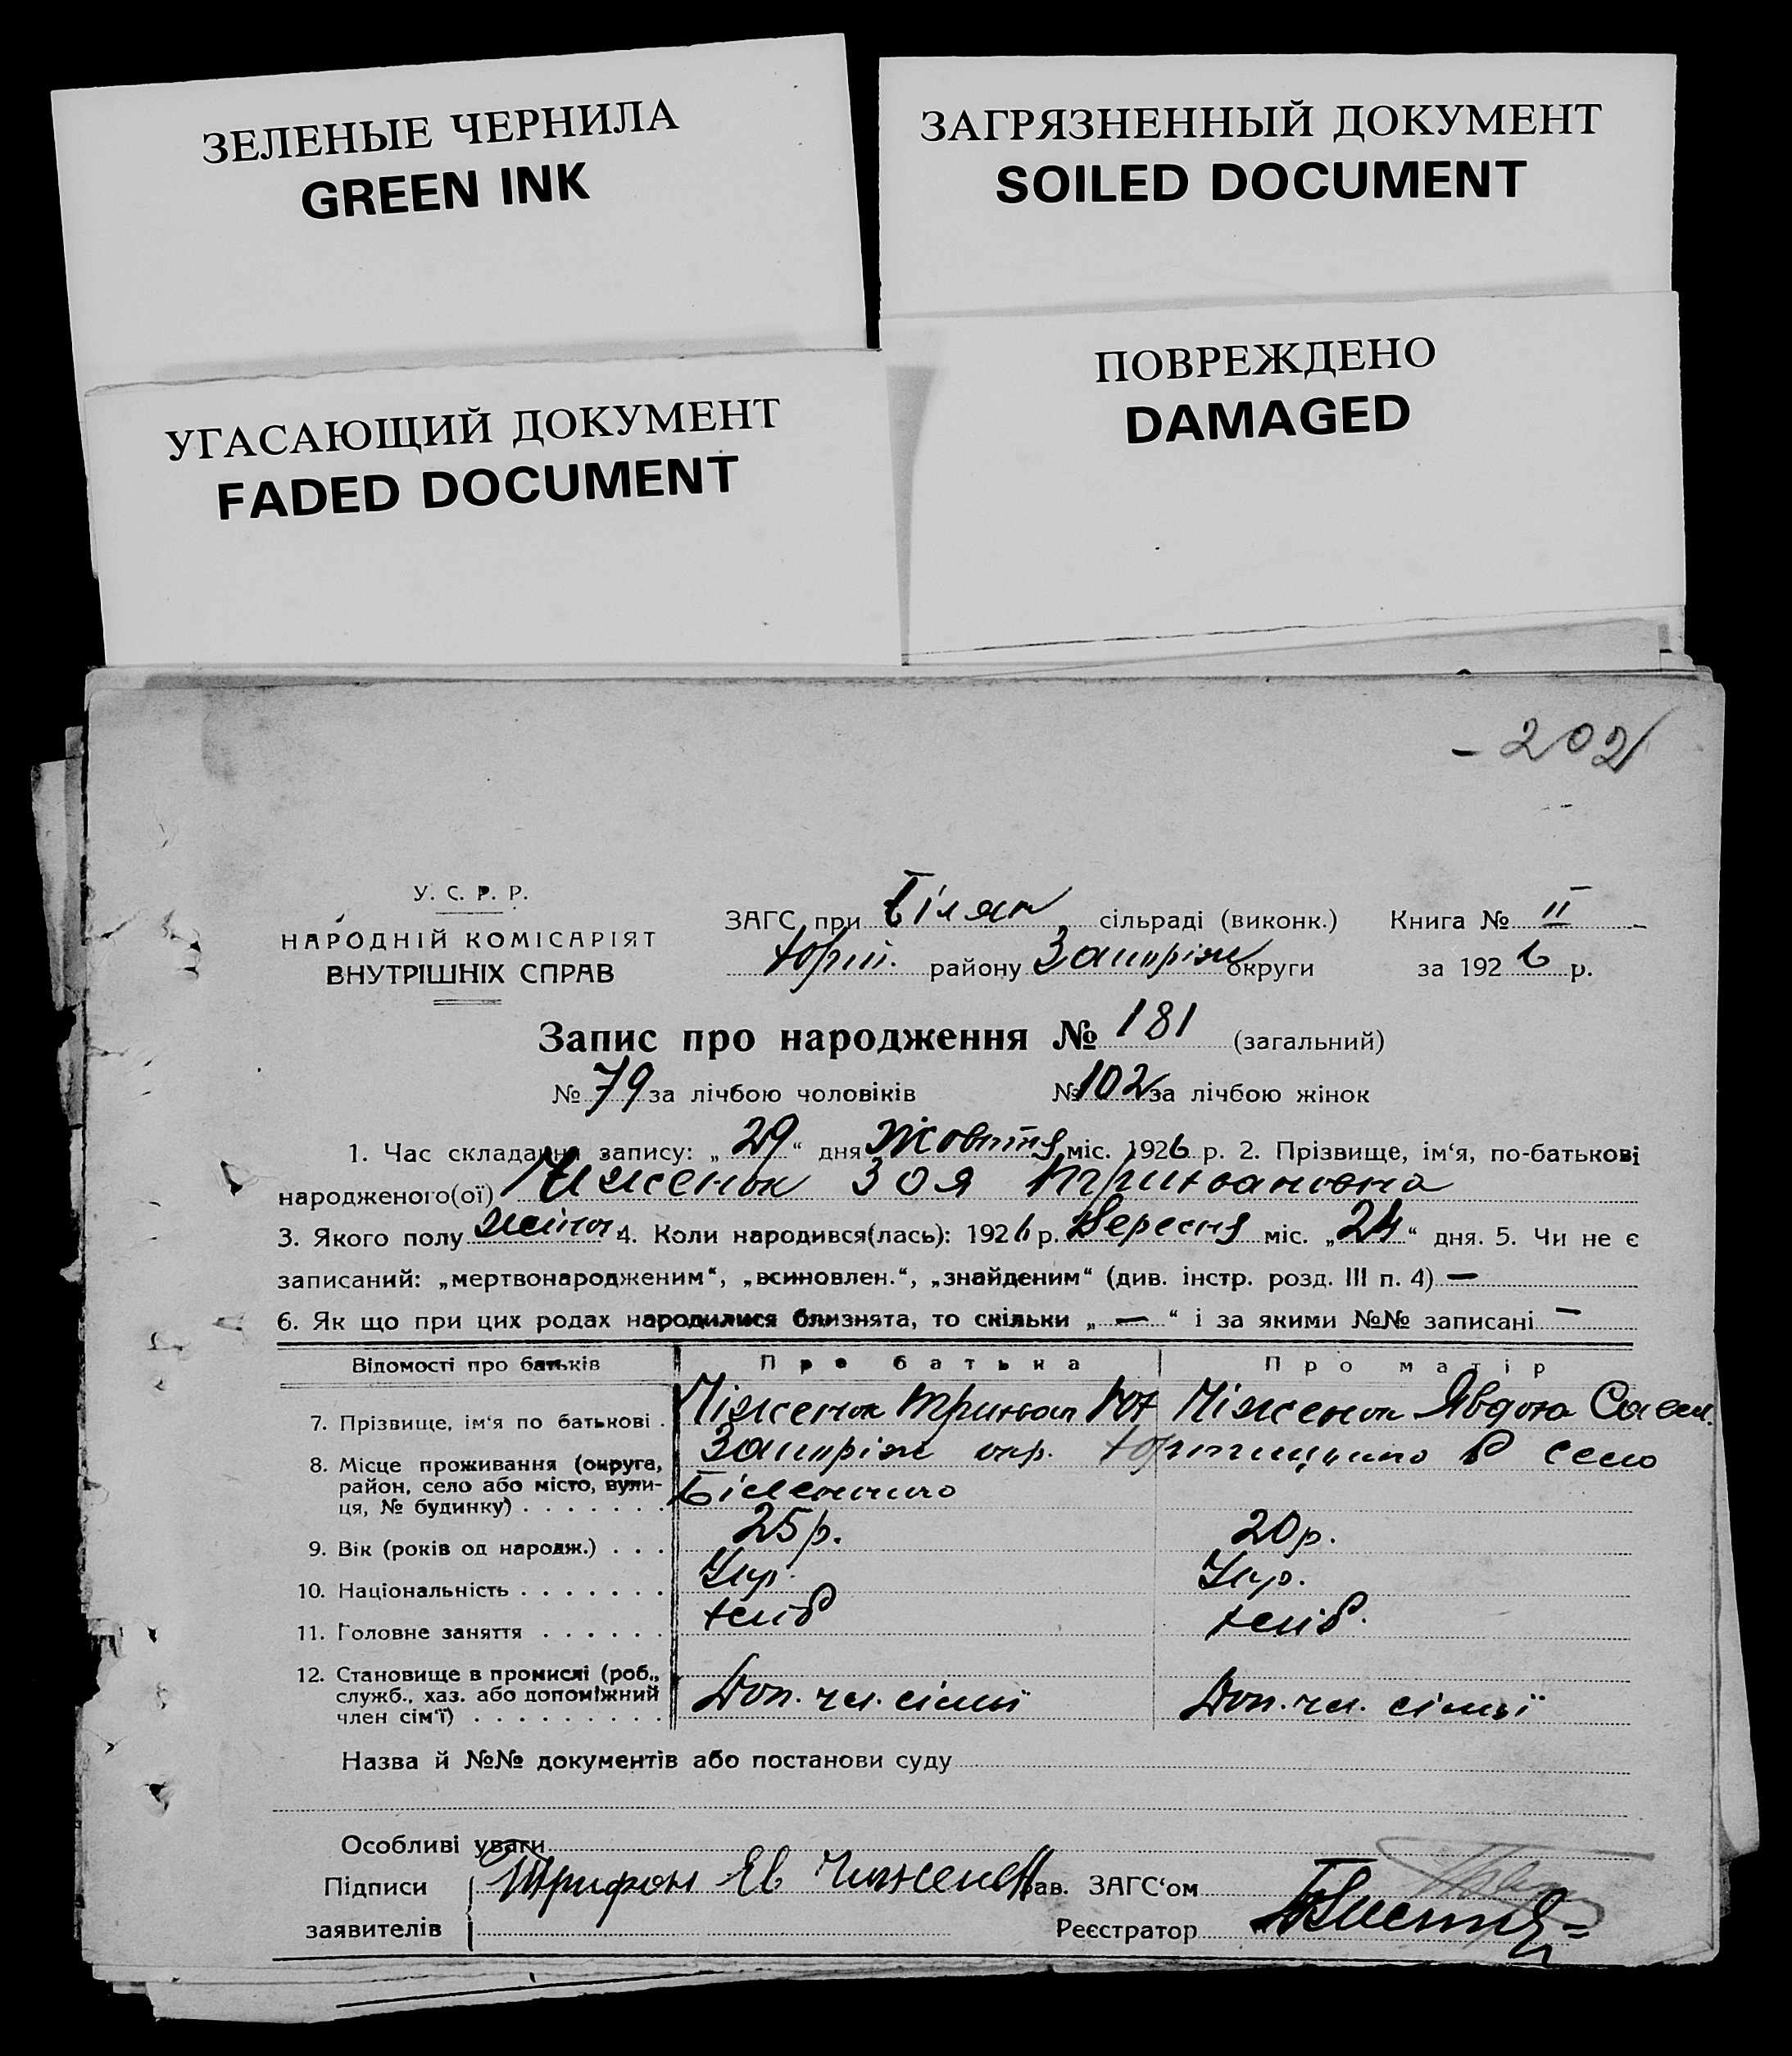 ЗЕЛЕНЫЕ ЧЕРНИЛА
GREEN INK
ЗАГРЯЗНЕННЫЙ ДОКУМЕНТ
SOILED DOCUMENT
УГАСАЮЩИЙ ДОКУМЕНТ
FADED DOCUMENT
ПОВРЕЖДЕНО
DAMAGED
- 202
У. С. Р. Р.
НАРОДНІЙ КОМІСАРІЯТ
ВНУТРІШНІХ СПРАВ
ЗАГС при Білян сільраді (виконк.) Книга № II
Хорт. району Запоріж округи за 1926 р.
Запис про народження № 181 (загальний)
№ 79 за лічбою чоловіків № 102 за лічбою жінок
1. Час складання запису: „29“ дня Жовтня міс. 1926 р. 2. Прізвище, ім‘я, по-батькові
народженого(ої) Зоя
3. Якого полу жіноч 4. Коли народився(лась): 1926 р. Вересня міс. „24“ дня. 5. Чи не є
записаний: „мертвонародженим“, „всиновлен.“, „знайденим“ (див. інстр. розд. III п. 4) —
6. Як що при цих родах народилися близнята, то скільки „—“ і за якими №№ записані —
Відомості про батьків Про батька Про матір
7. Прізвище, ім‘я по батькові . Чіженок Чіженок Явдоха Савел.
8. Місце проживання (округа, Запоріж окр. Р село
район, село або місто, вули-
ця, № будинку) . . . . . . .
9. Вік (років од народж.) . . . 25 р. 20 р.
10. Національність . . . . . . . Укр. Укр.
11. Головне заняття . . . . . . хліб хліб.
12. Становище в промислі (роб.,
служб., хаз. або допоміжний Доп. чл. сімьї Доп. чл. сімьї
член сім‘ї) . . . . . . . . .
Назва й №№ документів або постанови суду
Особливі уваги
Підписи Трифон Ев Зав. ЗАГС‘ом
заявителів Реєстратор